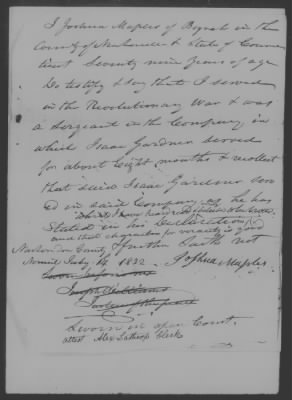 I Joshua Maples of Bozrah in the
County of New London & State of Connec
ticut Seventy nine years of age
Do testify & say that I served
in the Revolutionary War & was
a Sergeant in the Company in
which Isaac Gardner served
for about Eight months & recollect
that said Isaac Gardner serv
ed in said Company as he has
stated in his Declaration &
and that character for veracity is good
& further saith not
New London County
Norwich July 1832. Joshua Maples
Sworn in open Court.
attest Alex Lathrop Clerk